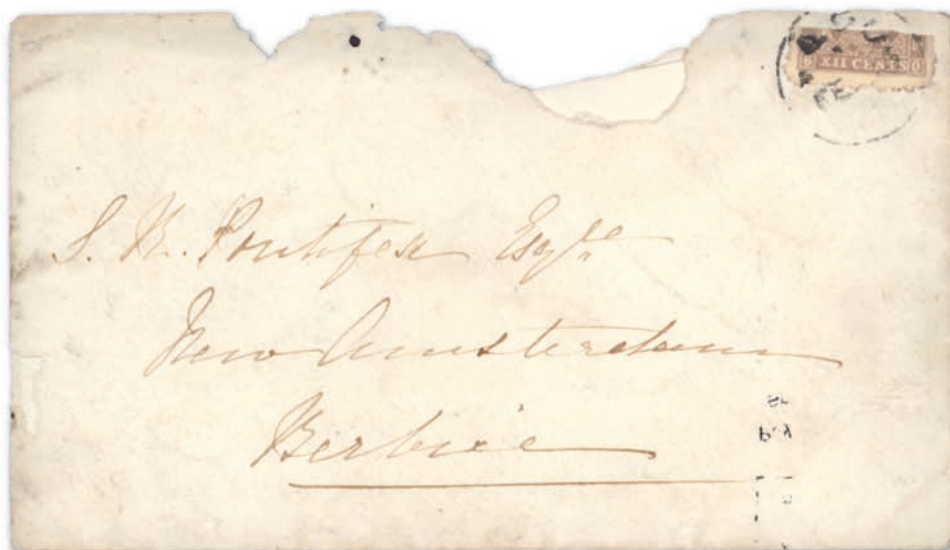 XII CENTS
S. W. Pontifex Esqre
New Amsterdam
Berbice